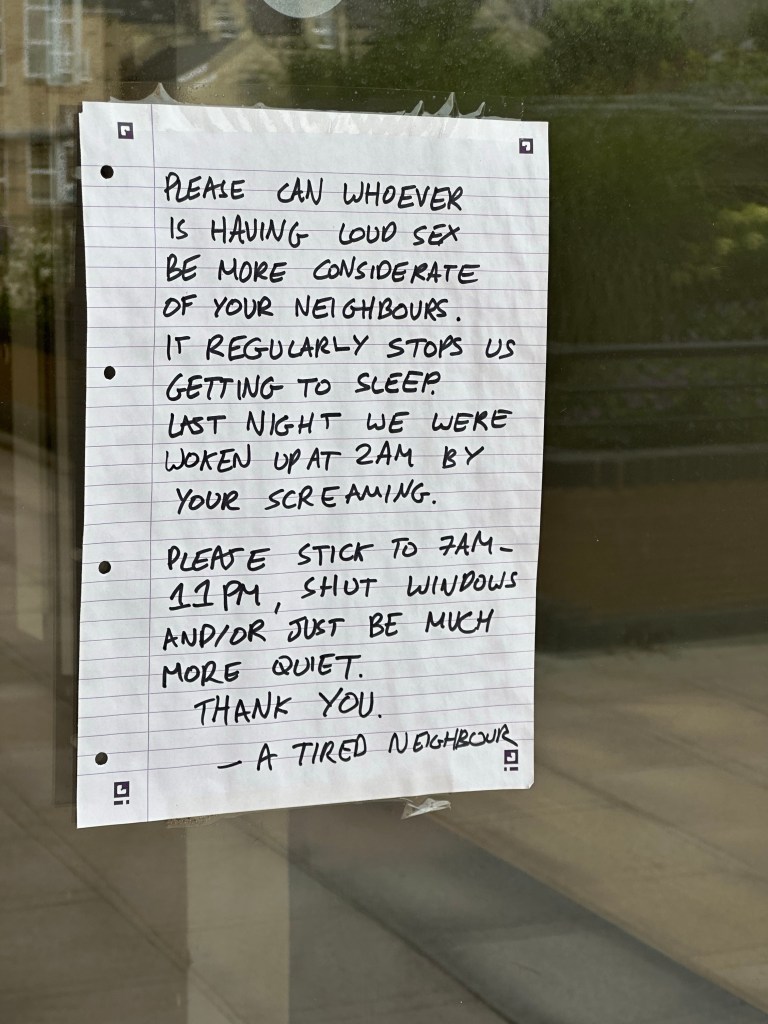 PLEASE CAN WHOEVER
IS HAVING LOUD SEX
BE MORE CONSIDERATE
OF YOUR NEIGHBOURS.
IT REGULARLY STOPS US
GETTING TO SLEEP.
LAST NIGHT WE WERE
WOKEN UP AT 2AM BY
YOUR SCREAMING.
PLEASE STICK TO 7AM-
11PM, SHUT WINDOWS
AND/OR JUST BE MUCH
MORE QUIET.
THANK YOU.
- A TIRED NEIGHBOUR